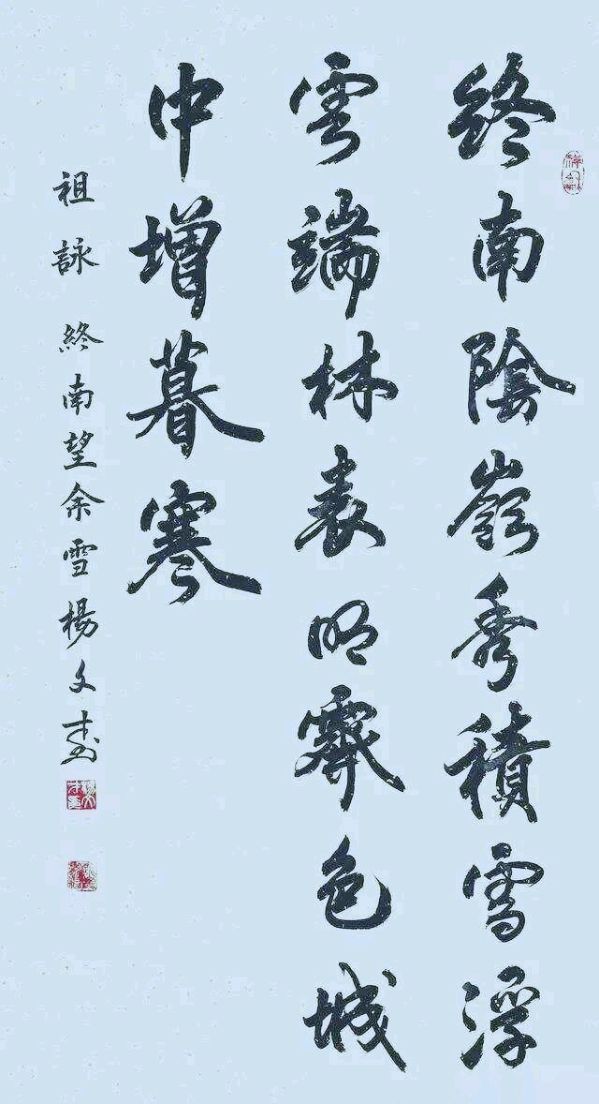 終南陰嶺秀積雪浮
雲端林表明霽色城
中增暮寒
祖詠 終南望余雪 楊文